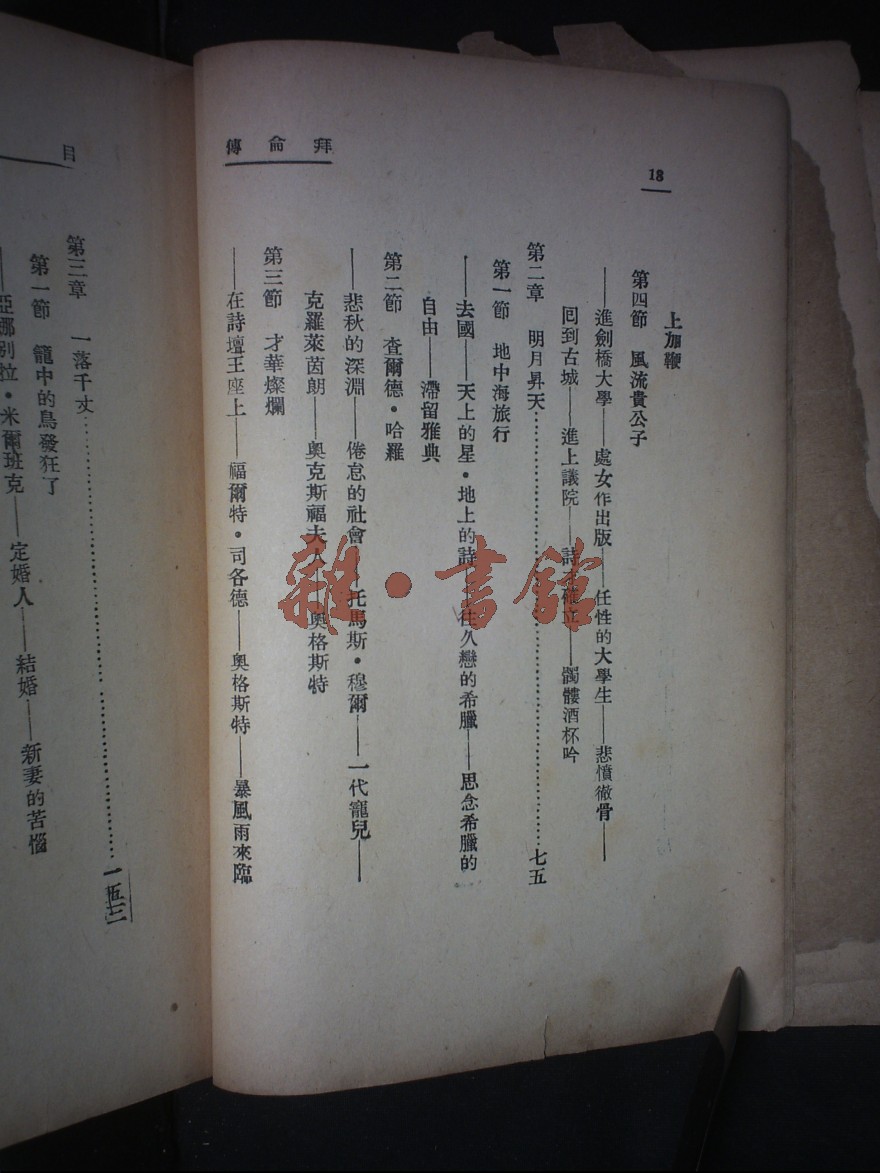 18
拜倫傳
上加鞭
第四節　風流貴公子
——進劍橋大學——處女作出版——任性的大學生——悲憤徹骨——
囘到古城——進上議院——詩　確立——髑髏酒杯吟
第二章　明月昇天…………………………七五
第一節　地中海旅行
——去國——天上的星・地上的詩——往久戀的希臘——思念希臘的
自由——滯留雅典
第二節　查爾德・哈羅
——悲秋的深淵——倦怠的社會——托馬斯・穆爾——一代寵兒——
克羅萊茵朗——奧克斯福夫人——奧格斯特
第三節　才華燦爛
——在詩壇王座上——福爾特・司各德——奧格斯特——暴風雨來臨
目
第三章　一落千丈…………………………一五三
第一節　籠中的鳥發狂了
——亞娜別拉・米爾班克——定婚人——結婚——新妻的苦惱
雜・書館